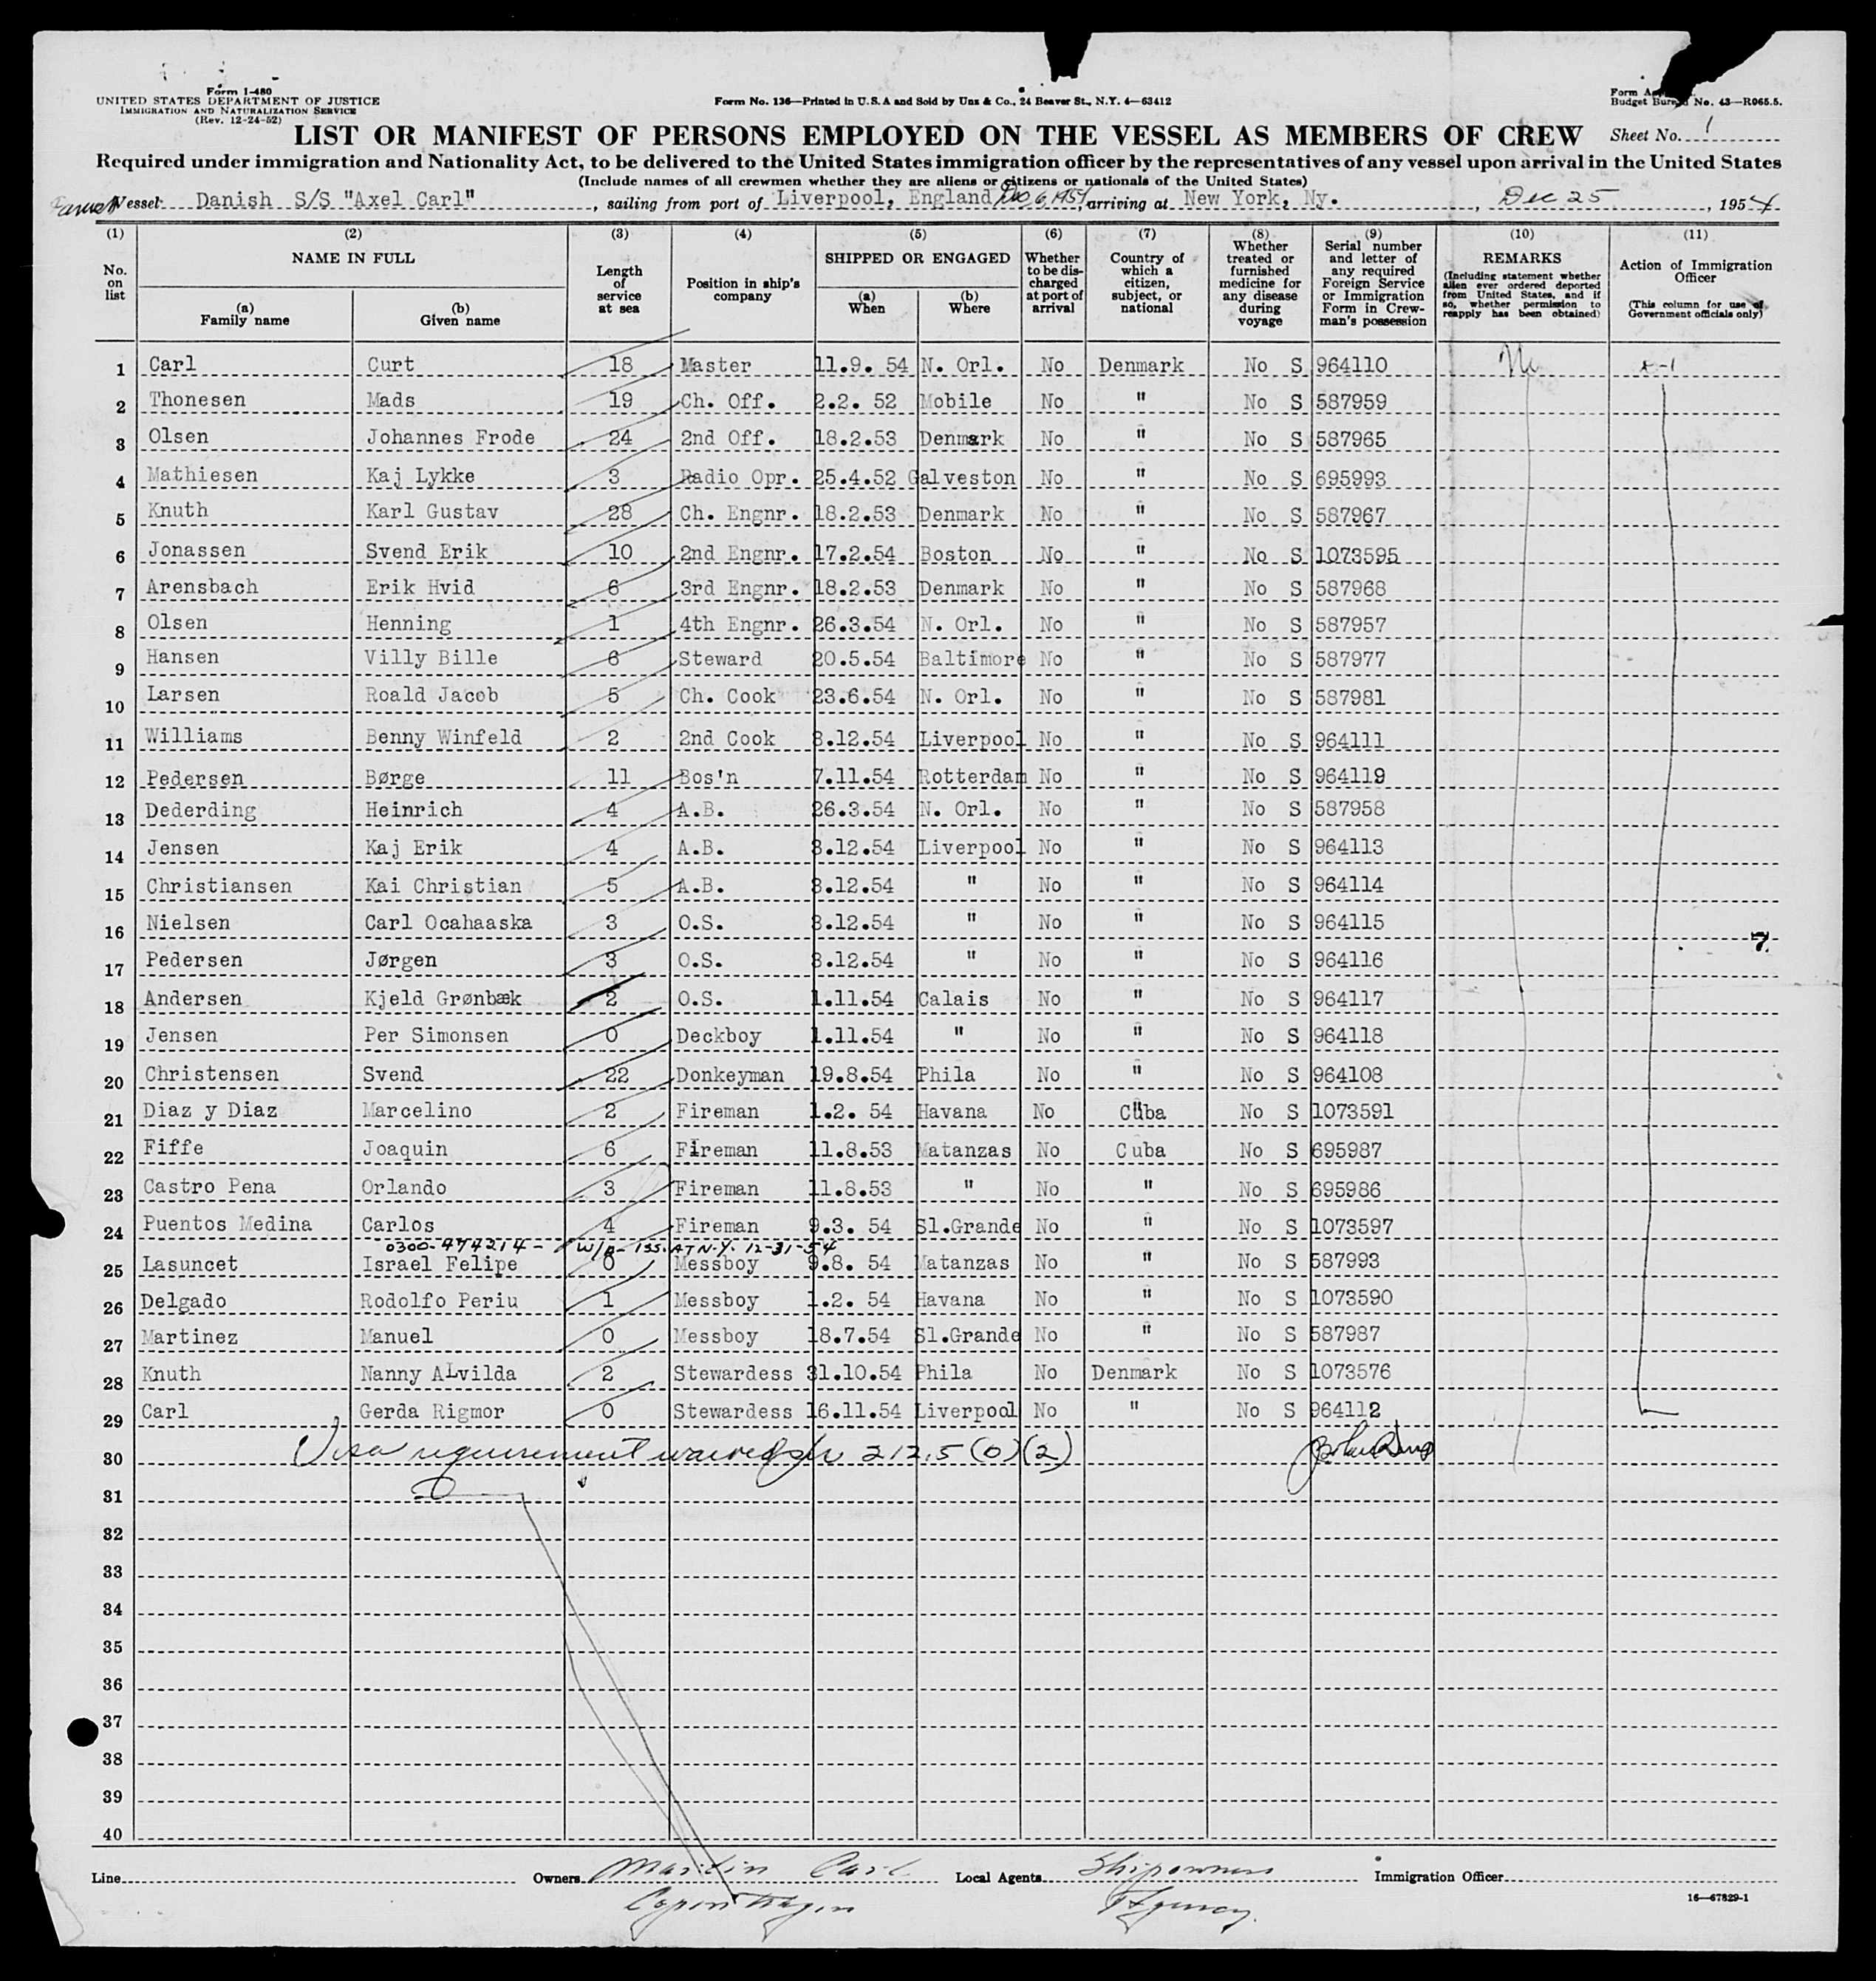 Form I-480
UNITED STATES DEPARTMENT OF JUSTICE
IMMIGRATION AND NATURALIZATION SERVICE
(Rev. 12-24-52)
Form No. 136—Printed in U.S.A and Sold by Unz & Co., 24 Beaver St., N.Y. 4—63412
Form A
Budget Bureau No. 43—R065.5.
LIST OR MANIFEST OF PERSONS EMPLOYED ON THE VESSEL AS MEMBERS OF CREW
Sheet No. 1
Required under immigration and Nationality Act, to be delivered to the United States immigration officer by the representatives of any vessel upon arrival in the United States
(Include names of all crewmen whether they are aliens or citizens or nationals of the United States)
Vessel Danish S/S "Axel Carl", sailing from port of Liverpool, England Dec 6, 1954, arriving at New York, Ny., Dec 25, 1954
(1) (2) (3) (4) (5) (6) (7) (8) (9) (10) (11)
No. on list
NAME IN FULL
(a) Family name
(b) Given name
Length of service at sea
Position in ship's company
SHIPPED OR ENGAGED
(a) When
(b) Where
Whether to be discharged at port of arrival
Country of which a citizen, subject, or national
Whether treated or furnished medicine for any disease during voyage
Serial number and letter of any required Foreign Service or Immigration Form in Crewman's possession
REMARKS
(Including statement whether alien ever ordered deported from United States, and if so, whether permission to reapply has been obtained)
Action of Immigration Officer
(This column for use of Government officials only)
1 Carl Curt 18 Master 11.9. 54 N. Orl. No Denmark No S 964110
2 Thonesen Mads 19 Ch. Off. 2.2. 52 Mobile No " No S 587959
3 Olsen Johannes Frode 24 2nd Off. 18.2.53 Denmark No " No S 587965
4 Mathiesen Kaj Lykke 3 Radio Opr. 25.4.52 Galveston No " No S 695993
5 Knuth Karl Gustav 28 Ch. Engnr. 18.2.53 Denmark No " No S 587967
6 Jonassen Svend Erik 10 2nd Engnr. 17.2.54 Boston No " No S 1073595
7 Arensbach Erik Hvid 6 3rd Engnr. 18.2.53 Denmark No " No S 587968
8 Olsen Henning 1 4th Engnr. 26.3.54 N. Orl. No " No S 587957
9 Hansen Villy Bille 6 Steward 20.5.54 Baltimore No " No S 587977
10 Larsen Roald Jacob 5 Ch. Cook 23.6.54 N. Orl. No " No S 587981
11 Williams Benny Winfeld 2 2nd Cook 3.12.54 Liverpool No " No S 964111
12 Pedersen Børge 11 Bos'n 7.11.54 Rotterdam No " No S 964119
13 Dederding Heinrich 4 A.B. 26.3.54 N. Orl. No " No S 587958
14 Jensen Kaj Erik 4 A.B. 3.12.54 Liverpool No " No S 964113
15 Christiansen Kai Christian 5 A.B. 3.12.54 " No " No S 964114
16 Nielsen Carl Ocahaaska 3 O.S. 3.12.54 " No " No S 964115
7
17 Pedersen Jørgen 3 O.S. 3.12.54 " No " No S 964116
18 Andersen Kjeld Grønbæk 2 O.S. 1.11.54 Calais No " No S 964117
19 Jensen Per Simonsen 0 Deckboy 1.11.54 " No " No S 964118
20 Christensen Svend 22 Donkeyman 19.8.54 Phila No " No S 964108
21 Diaz y Diaz Marcelino 2 Fireman 1.2. 54 Havana No Cuba No S 1073591
22 Fiffe Joaquin 6 Fireman 11.8.53 Matanzas No Cuba No S 695987
23 Castro Pena Orlando 3 Fireman 11.8.53 " No " No S 695986
24 Puentos Medina Carlos 4 Fireman 9.3. 54 Sl.Grande No " No S 1073597
0300-474214 - W/A- ISS. AT N.Y. 12-31-54
25 Lasuncet Israel Felipe 0 Messboy 9.8. 54 Matanzas No " No S 587993
26 Delgado Rodolfo Periu 1 Messboy 1.2. 54 Havana No " No S 1073590
27 Martinez Manuel 0 Messboy 18.7.54 Sl.Grande No " No S 587987
28 Knuth Nanny ALvilda 2 Stewardess 31.10.54 Phila No Denmark No S 1073576
29 Carl Gerda Rigmor 0 Stewardess 16.11.54 Liverpool No " No S 964112
30 Visa requirement waived 212.5 (0)(2)
31
32
33
34
35
36
37
38
39
40
Line Owners Martin Carl Local Agents Shipowners Immigration Officer
Copenhagen Agency
16—67829-1